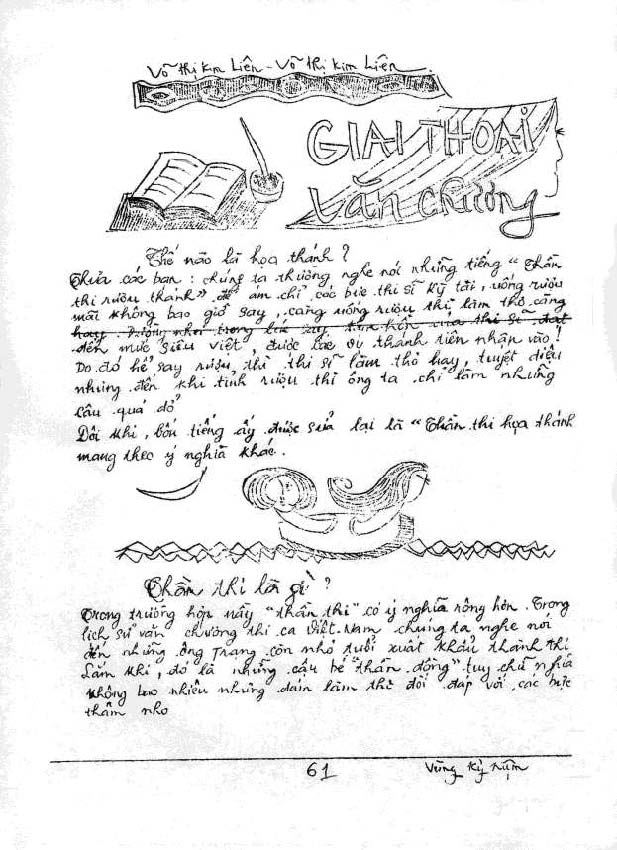 Võ thị Kim Liên - Võ thị Kim Liên
GIAI THOẠI
Văn chương
Thế nào là họa thánh ?
Thưa các bạn : chúng ta thường nghe nói những tiếng “ Thần
thi rượu thánh” để ám chỉ các bực thi sĩ kỳ tài, uống rượu
mãi không bao giờ say, càng uống rượu thì làm thơ càng
hay. trong lúc say, tâm hồn của thi sĩ đạt
đến mức siêu việt, được các vị thánh tiên nhập vào !
Do đó hể say rượu thì thi sĩ làm thơ hay, tuyệt diệu
nhưng đến khi tỉnh rượu thì ông ta chỉ làm những
câu quá dở
Đôi khi, bốn tiếng ấy được sửa lại là “Thần thi họa thánh
mang theo ý nghĩa khác..
Thần thi là gì ?
Trong trường hợp nầy “thần thi” có ý nghĩa rộng hơn. Trong
lịch sử văn chương thi ca Việt-Nam chúng ta nghe nói
đến những ông Trạng còn nhỏ tuổi xuất khẩu thành thi
Lắm khi, đó là những cậu bé “thần đồng” tuy chữ nghĩa
không bao nhiêu nhưng dám làm thơ đối đáp với các bực
thâm nho
61
Vùng Kỷ Niệm